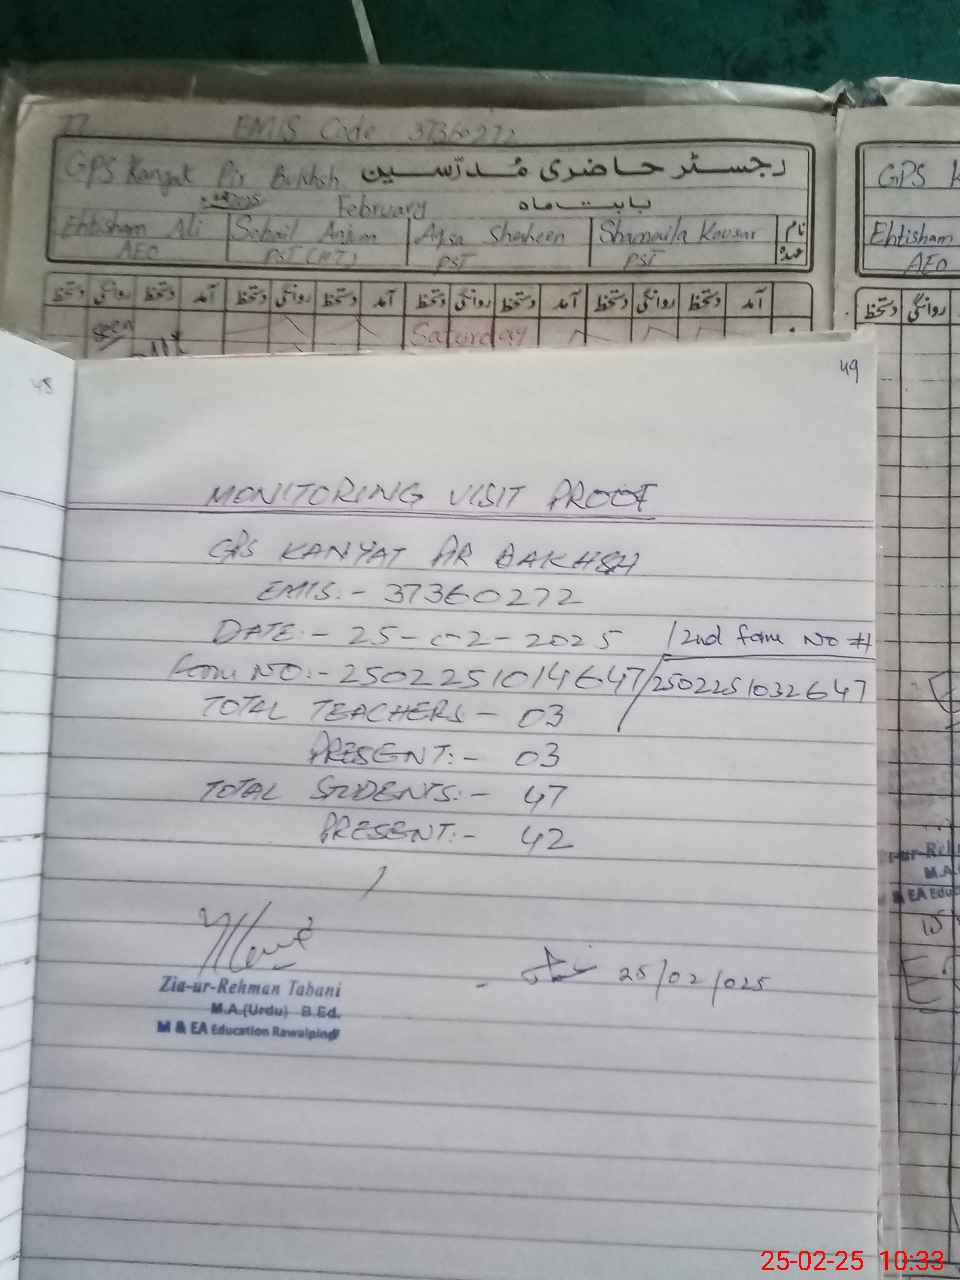 77 EMIS Code 37360272
GPS Kanyat Pir Bukhsh رجسٹر حاضری مُدرّسین
February بابت ماہ
Ehtisham Ali Sohail Anjum Aqsa Shaheen Shamaila Kousar نام
AEO PST (HT) PST PST عہدہ
دستخط روانگی دستخط آمد دستخط روانگی دستخط آمد دستخط روانگی دستخط آمد دستخط روانگی دستخط آمد
Seen Saturday
GPS K
Ehtisham
AEO
دستخط روانگی
48
49
MONITORING VISIT PROOF
GPS KANYAT PIR BAKHSH
EMIS:- 37360272
DATE:- 25-02-2025 / 2nd form No #
Form NO:- 2502251014647/2502251032647
TOTAL TEACHERS - 03
PRESENT:- 03
TOTAL STUDENTS:- 47
PRESENT:- 42
25/02/025
Zia-ur-Rehman Tabani
M.A.(Urdu) B.Ed.
M & EA Education Rawalpindi
ur-Reh
M.A.
& EA Edu
25-02-25 10:33